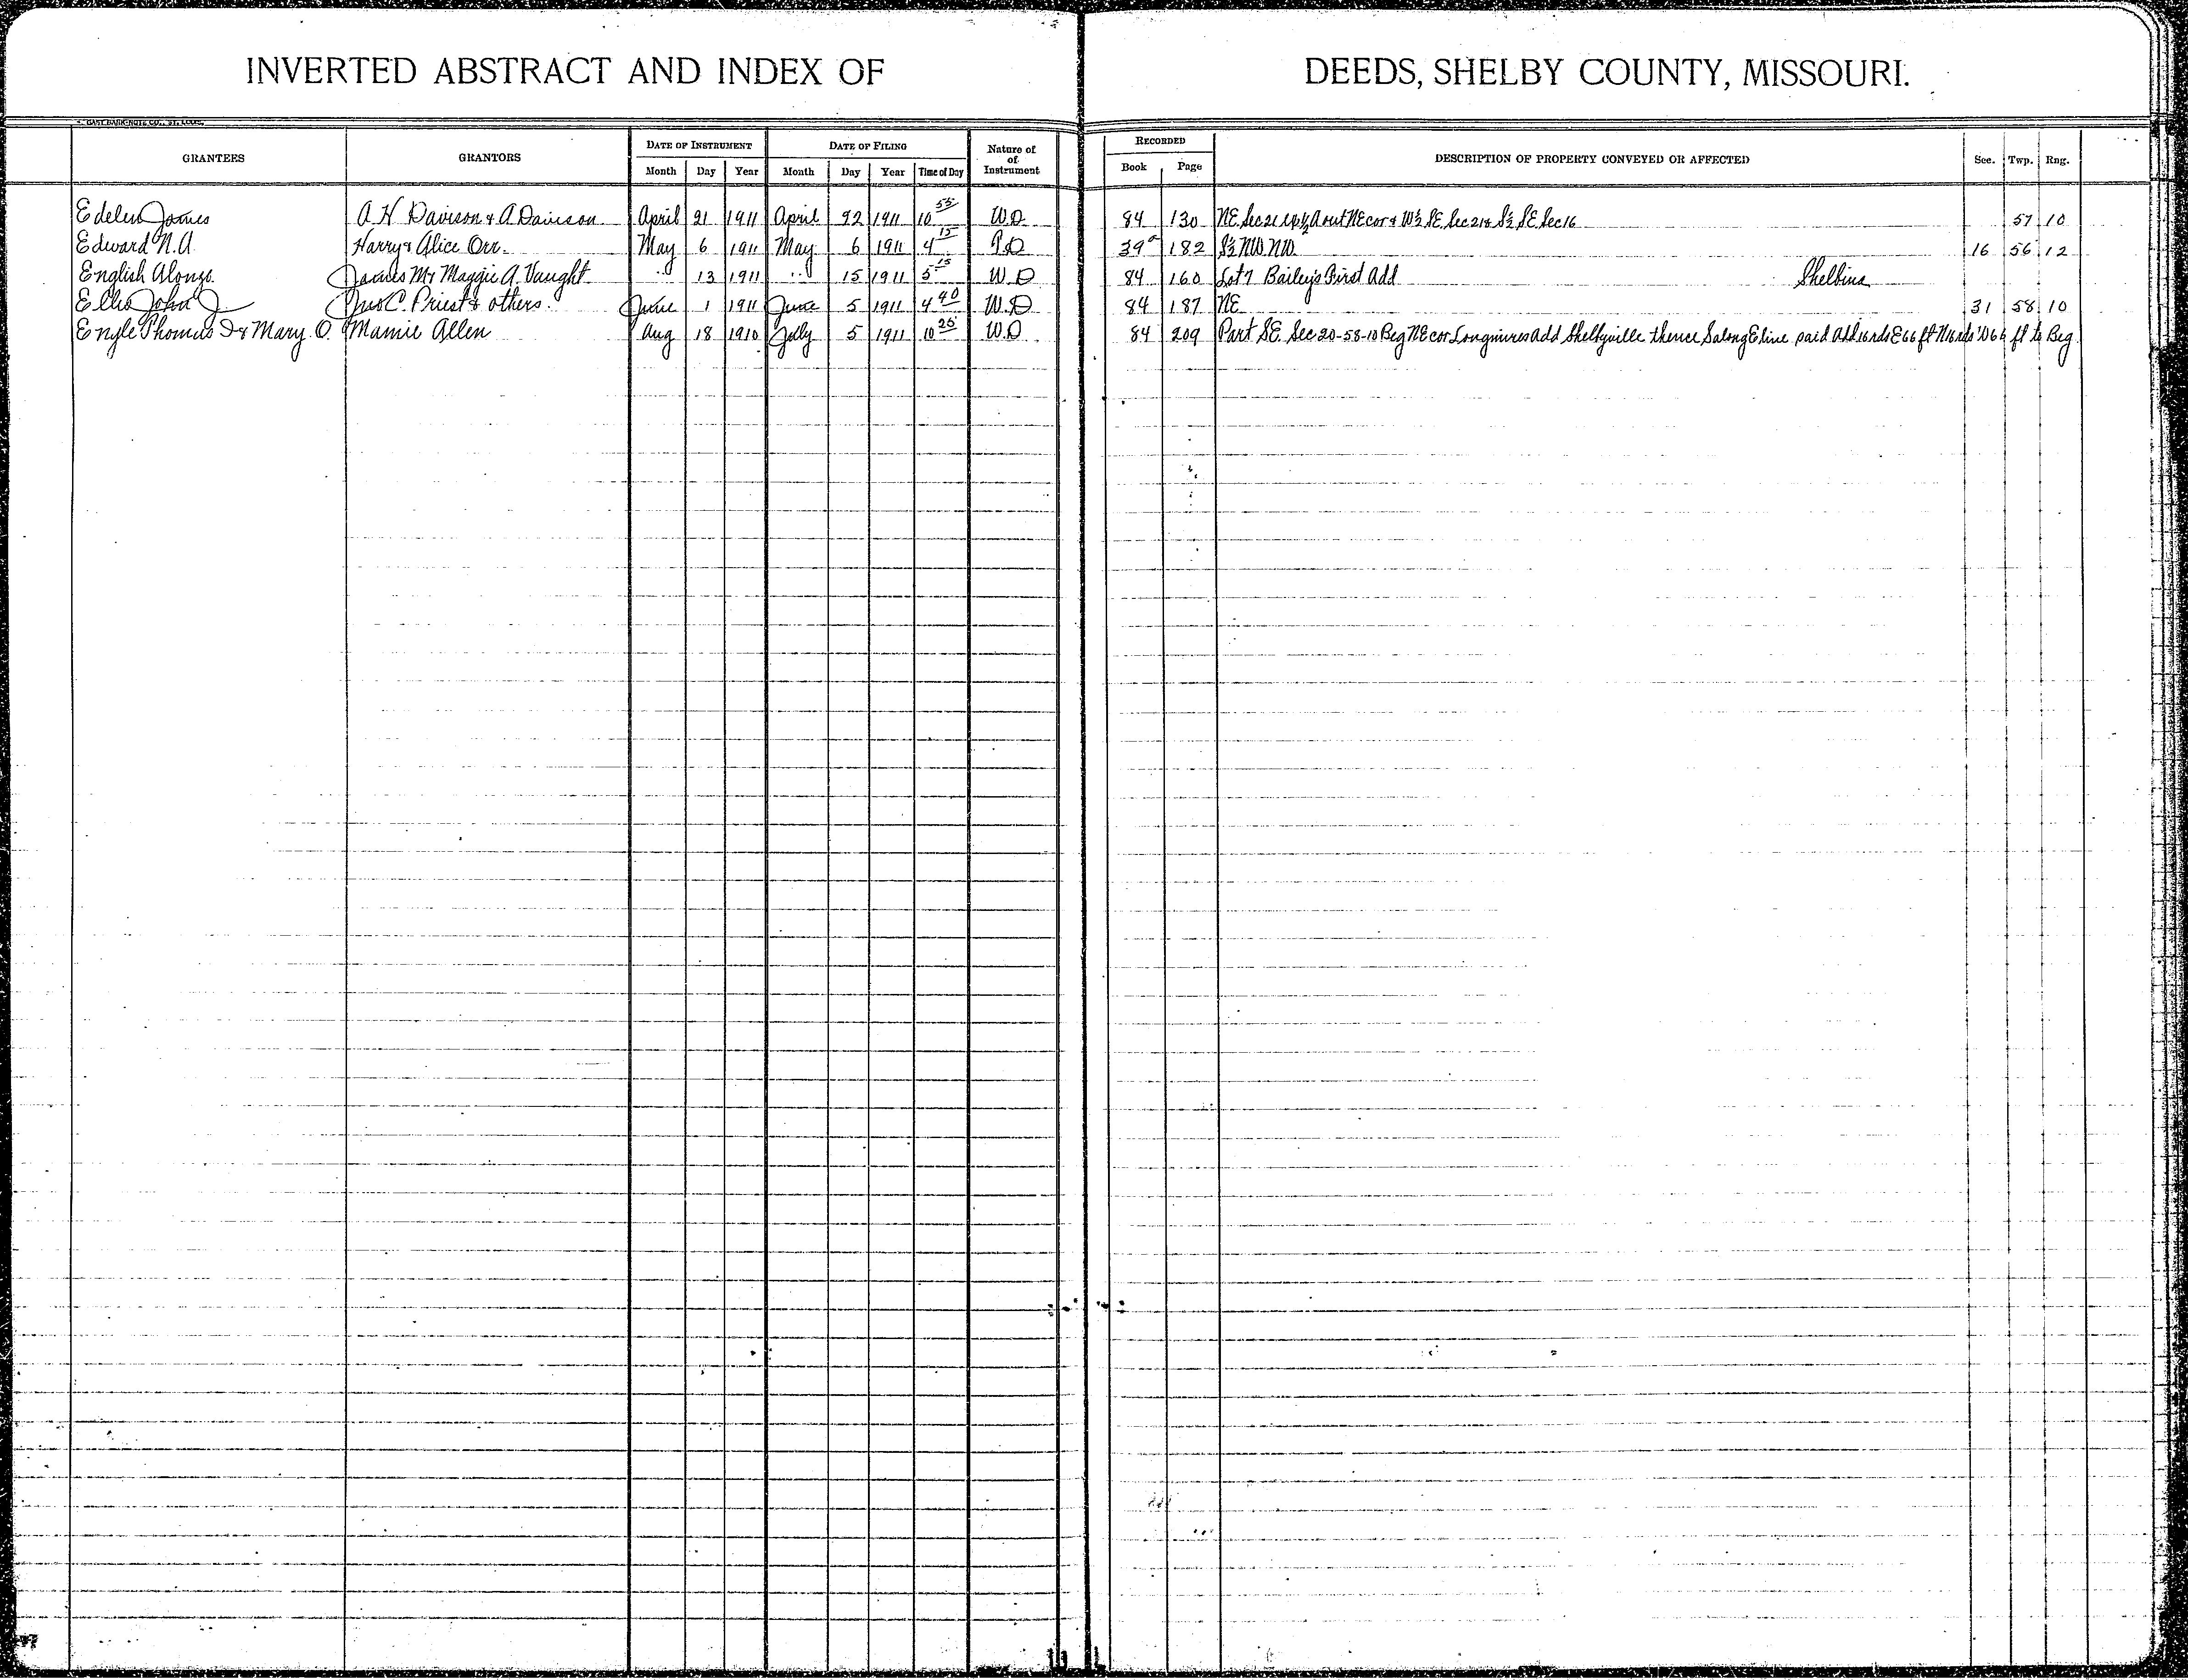 INVERTED ABSTRACT AND INDEX OF DEEDS, SHELBY COUNTY, MISSOURI.
GRANTEES GRANTORS DATE OF INSTRUMENT DATE OF FILING Nature of of Instrument RECORDED DESCRIPTION OF PROPERTY CONVEYED OR AFFECTED Sec. Twp. Rng.
Month Day Year Month Day Year Time of Day Book Page
Edelen James A H Davison & A Davison April 21 1911 April 22 1911 10 55 W.D. 84 130 NE Sec 21 A out NE cor & W½ SE Sec 21 & S½ SE Sec 16 57 10
Edward N.A. Harry & Alice Orr. May 6 1911 May 6 1911 4 15 39 182 S½ NW NW. 16 56 12
English Alonzo. James M & Maggie A. Vaught " 13 1911 " 15 1911 5 15 W.D 84 160 Lot 7 Bailey's First Add Shelbina
John J Jno C. Priest & others. June 1 1911 June 5 1911 4 40 W.D 84 187 NE 31 58 10
Engle Thomas & Mary O. Mamie Allen Aug 18 1910 July 5 1911 10 25 W.D 84 209 Part SE. Sec 20-58-10 Beg NE cor Add Shelbyville thence S along E line said Add 16 rds E 66 ft N 16 rds W 66 ft to Beg